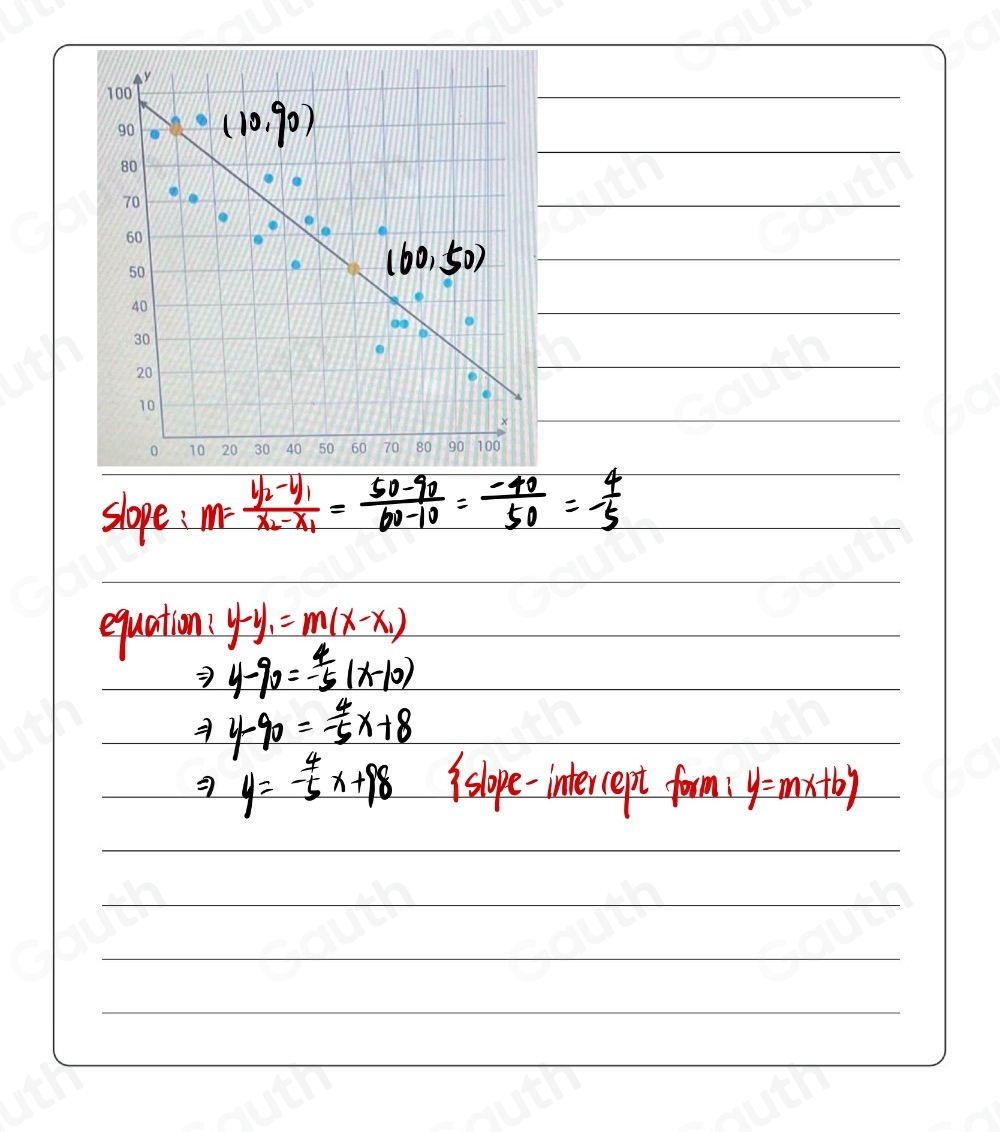 y
100
90
80
70
60
50
40
30
20
10
(10,90)
(60,50)
x
0 10 20 30 40 50 60 70 80 90 100
slope: m = y₂-y₁/x₂-x₁ = 50-90/60-10 = -40/50 = -4/5
equation: y-y₁ = m(x-x₁)
⇒ y-90 = -4/5(x-10)
⇒ y-90 = -4/5x+8
⇒ y = -4/5x+98 {slope-intercept form: y=mx+b}
Gauth